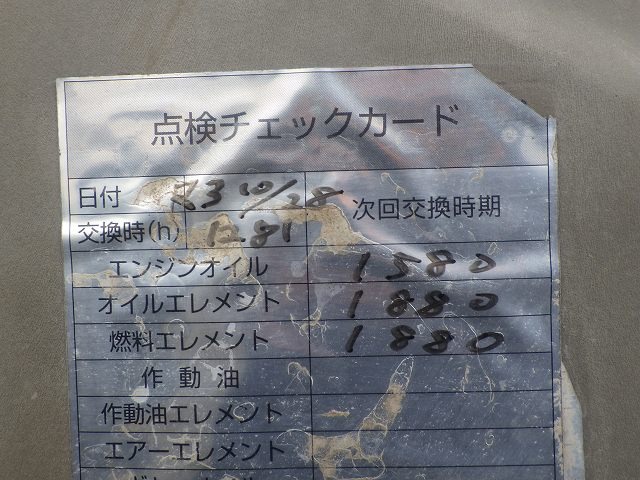 点検チェックカード
日付 R3 10/28 次回交換時期
交換時(h) 1281
エンジンオイル 1580
オイルエレメント 1880
燃料エレメント 1880
作動油
作動油エレメント
エアーエレメント